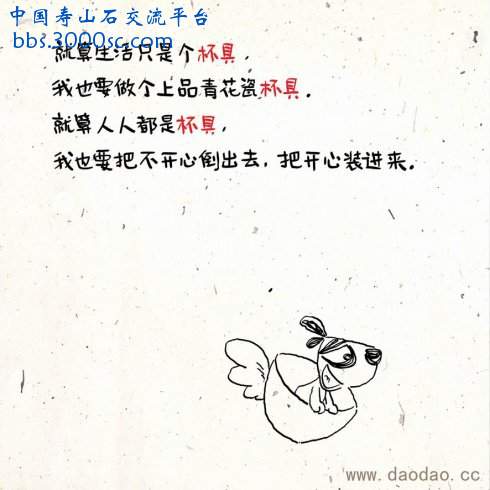 中国寿山石交流平台
bbs.3000sc.com
就算生活只是个杯具，
我也要做个上品青花瓷杯具。
就算人人都是杯具，
我也要把不开心倒出去，把开心装进来。
www.daodao.cc